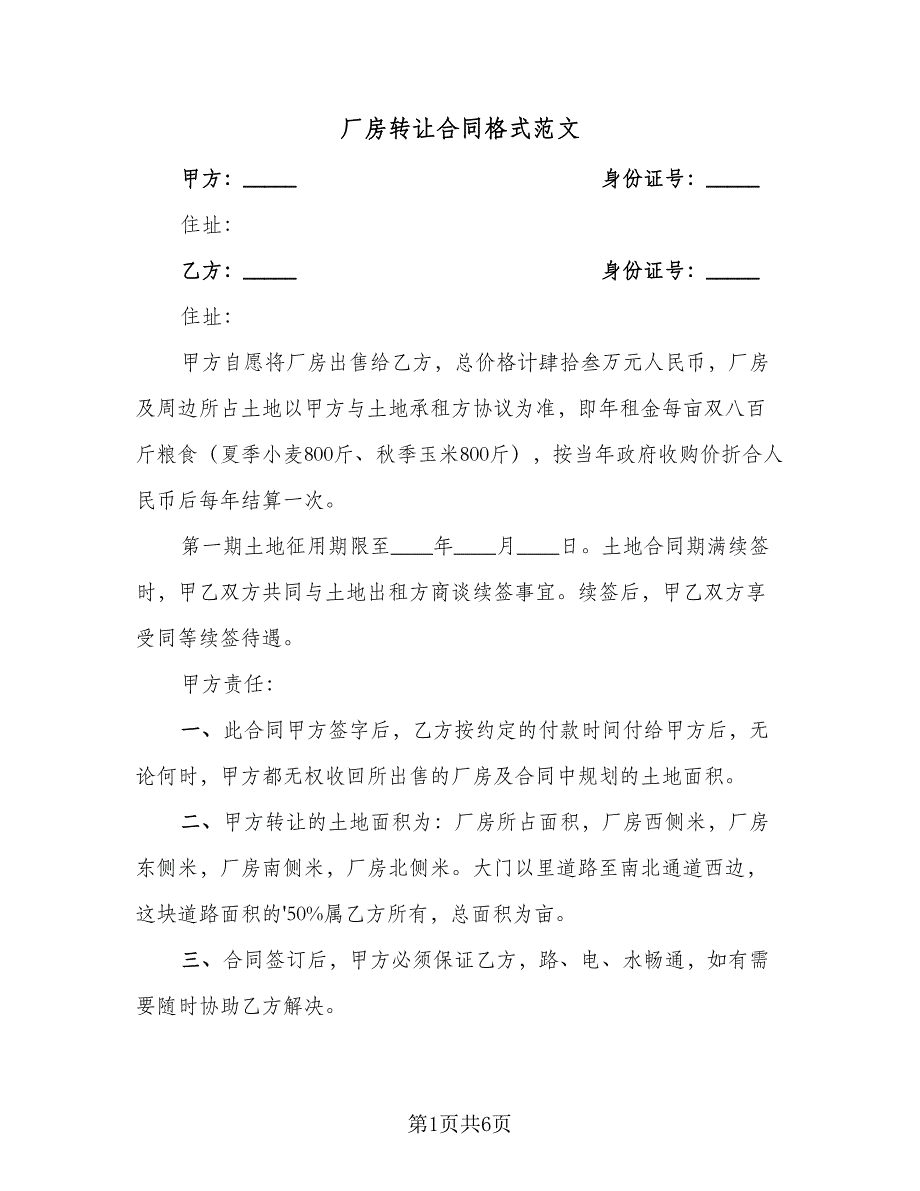 厂房转让合同格式范文
甲方：_____ 身份证号：_____
住址：
乙方：_____ 身份证号：_____
住址：
甲方自愿将厂房出售给乙方，总价格计肆拾叁万元人民币，厂房
及周边所占土地以甲方与土地承租方协议为准，即年租金每亩双八百
斤粮食（夏季小麦800斤、秋季玉米800斤），按当年政府收购价折合人
民币后每年结算一次。
第一期土地征用期限至____年____月____日。土地合同期满续签
时，甲乙双方共同与土地出租方商谈续签事宜。续签后，甲乙双方享
受同等续签待遇。
甲方责任：
一、此合同甲方签字后，乙方按约定的付款时间付给甲方后，无
论何时，甲方都无权收回所出售的厂房及合同中规划的土地面积。
二、甲方转让的土地面积为：厂房所占面积，厂房西侧米，厂房
东侧米，厂房南侧米，厂房北侧米。大门以里道路至南北通道西边，
这块道路面积的'50%属乙方所有，总面积为亩。
三、合同签订后，甲方必须保证乙方，路、电、水畅通，如有需
要随时协助乙方解决。
第1页共6页